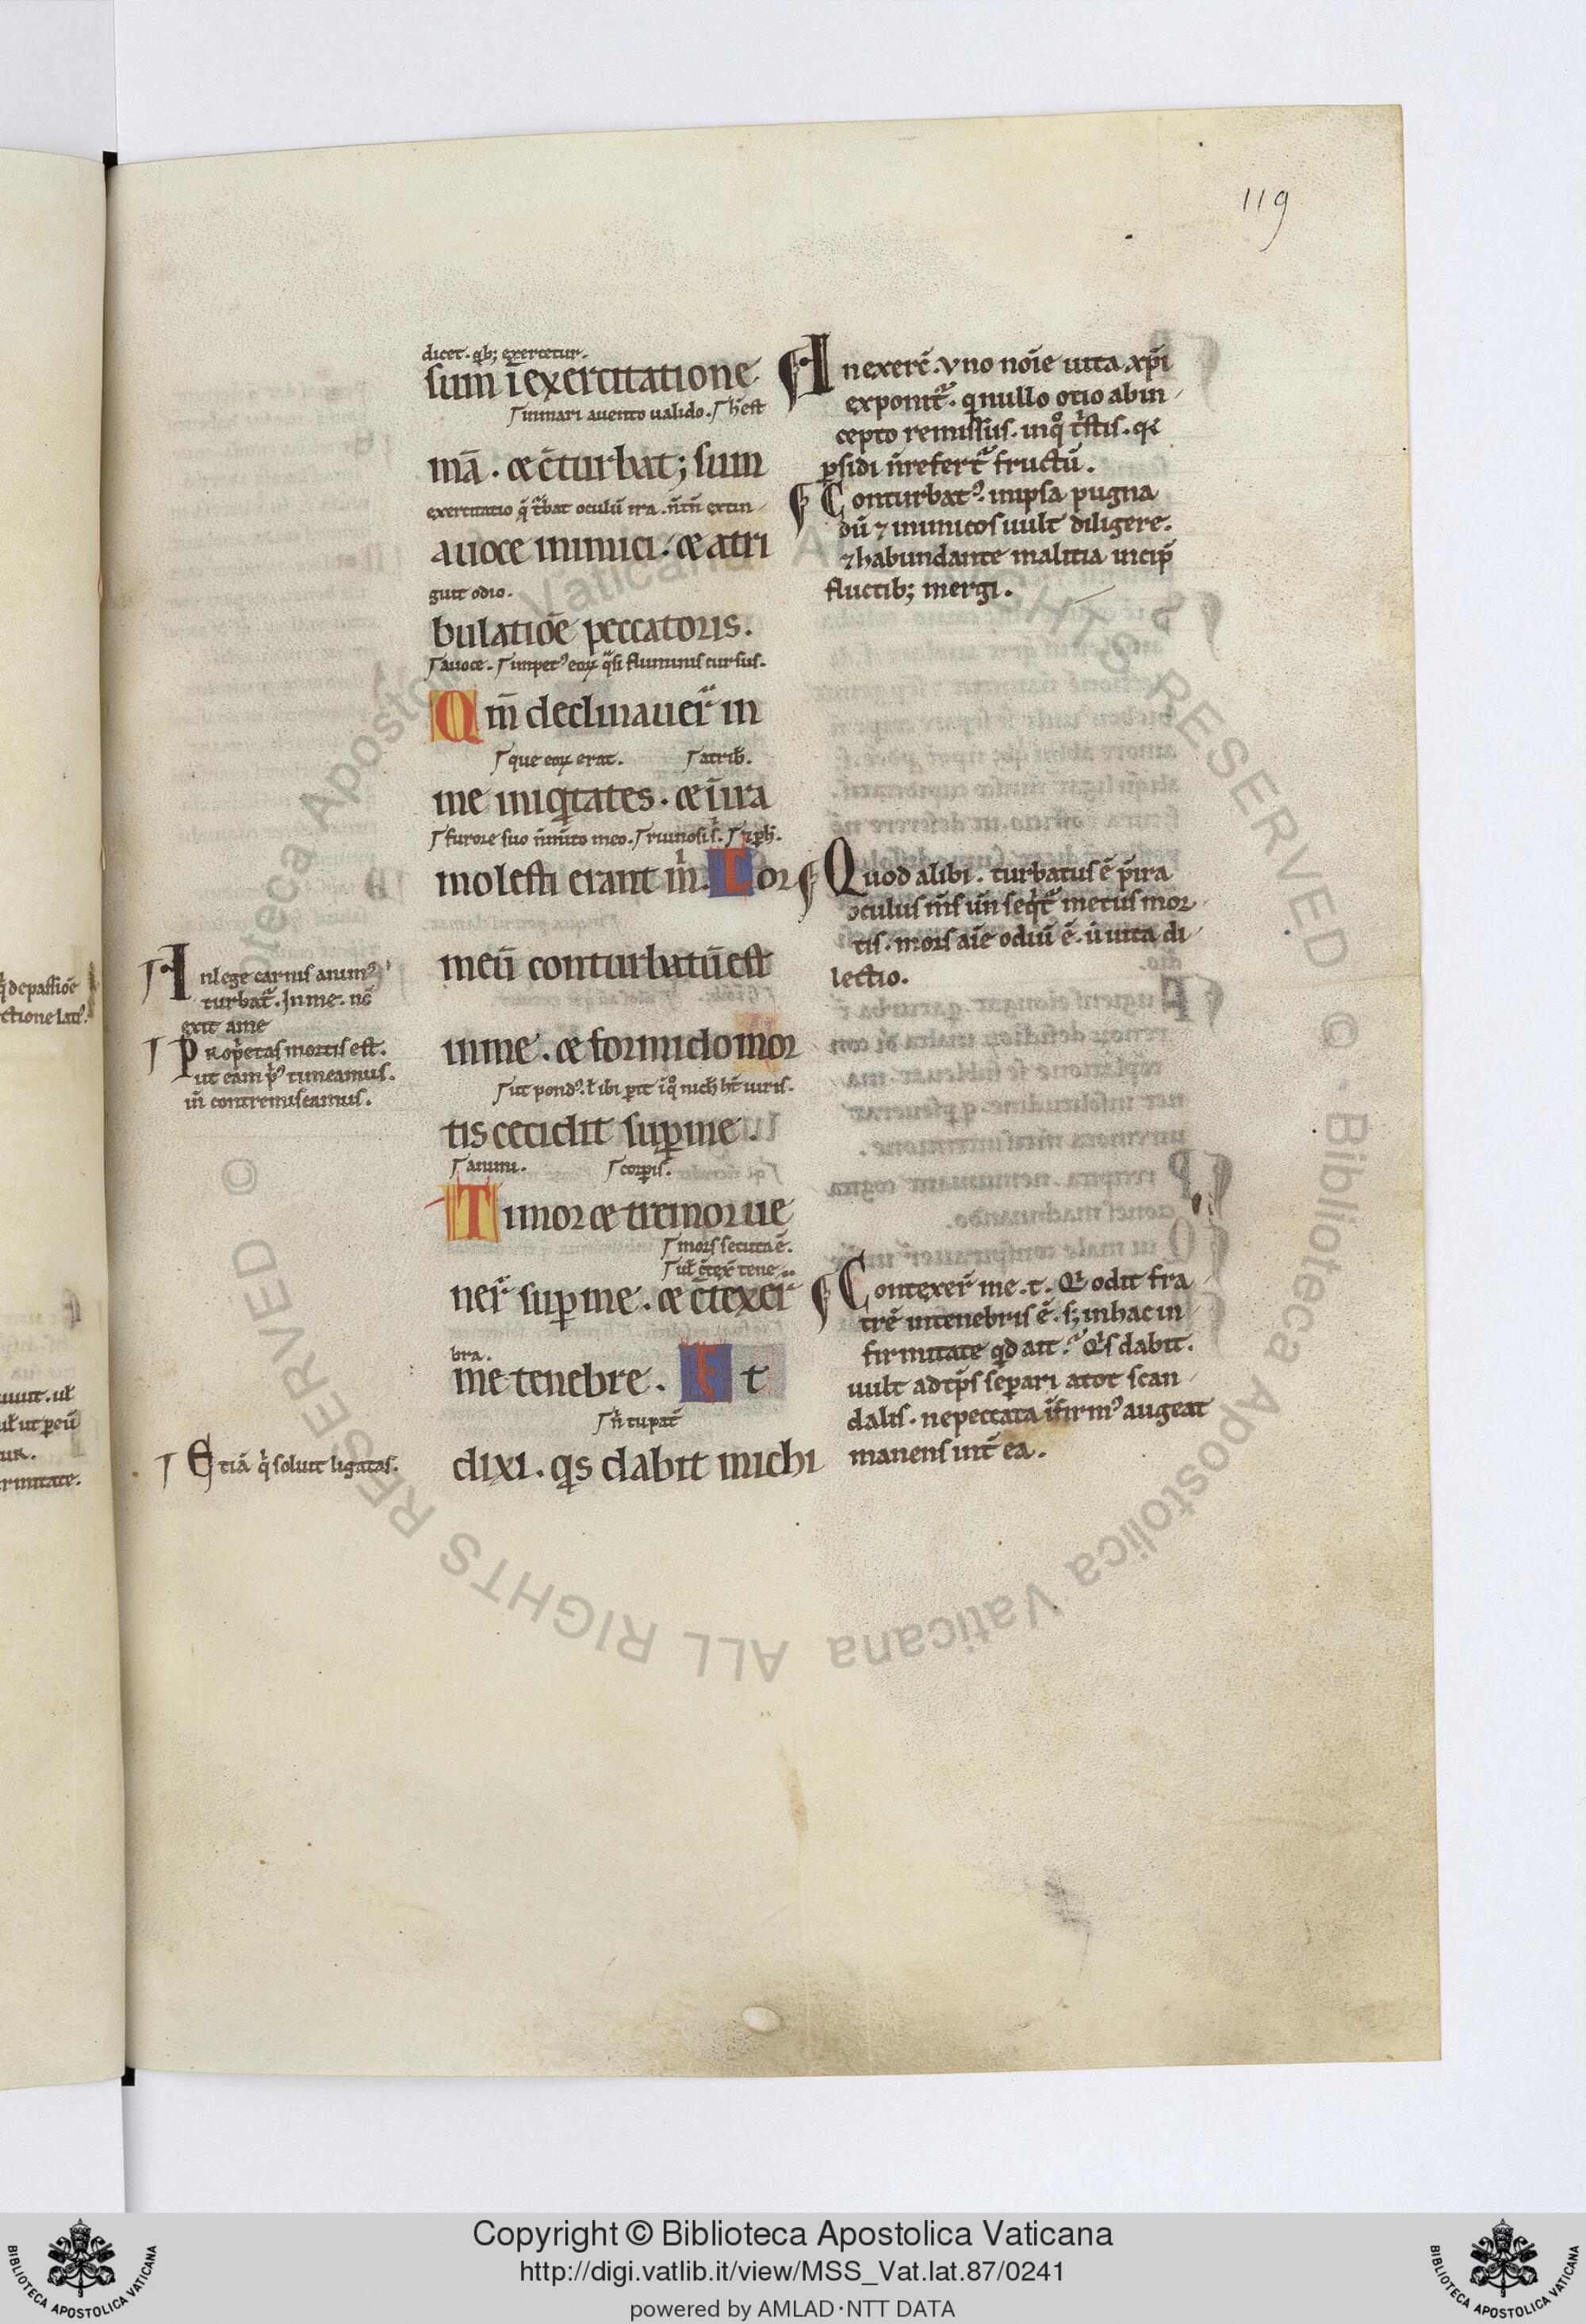 119
dicet. qb; exercetur.
sum ī exercitatione
in mari a vento ualido. h̄ est
mā. & c̄turbat; sum
exercitatio q̄ t̄bat oculū ira. n̄ tn̄ extin
a uoce inimici. & a tri
guit odio.
bulatiōe peccatoris.
a uoce. impet᾽ eoꝝ q̄si fluminis cursus.
Qm̄ declinauer̄ in
que eoꝝ erat. a trib̄.
me iniq̇tates. & ī ira
furore suo
molesti erant m̄. Cor
meū conturbatū est
in me. & formido mor
ut pond᾽. ł ibi
tis cecidit sup me.
animi. corpis.
Timor & tremor ue
mors secuta ē.
uł c̄tex̄ tene
ner̄ sup me. & c̄texer̄
bra.
me tenebre. Et
dixi. qs dabit michi
In exerc̄. Vno noīe uita xp̄i
exponit᷑. q nullo otio ab in
cepto remissus. in qͦ t̄stis. qa
psidi n̄ refert᷑ fructū.
Conturbat᾽. in ipsa pugna
dū ⁊ inimicos uult diligere.
⁊ habundante malitia incip̄
fluctib; mergi.
Quod alibi. turbatus ē p̄ ira
oculus m̄s un̄ seq̇t᷑ metus mor
tis. mors aīe odiū ē. ū uita di
lectio.
Contexer̄ me. t. Qi odit fra
trē in tenebris ē. s; in hac in
firmitate qd ait. Qis dabit.
uult ad tp̄s separi a tot scan
dalis. ne peccata ī firm᾽ augeat
manens int̄ ea.
In lege carnis anim᾽
turbat᷑. In me. nō
exit a me
Prop̄etas mortis est.
ut eam p᾽ timeamus.
in̄ contremiscamus.
Etiā q̇ soluit ligatas.
q̇ de passiōe
rmitate.
Copyright © Biblioteca Apostolica Vaticana
http://digi.vatlib.it/view/MSS_Vat.lat.87/0241
powered by AMLAD·NTT DATA
BIBLIOTECA APOSTOLICA VATICANA
BIBLIOTECA APOSTOLICA VATICANA
© Biblioteca Apostolica Vaticana ALL RIGHTS RESERVED
© Biblioteca Apostolica Vaticana ALL RIGHTS RESERVED